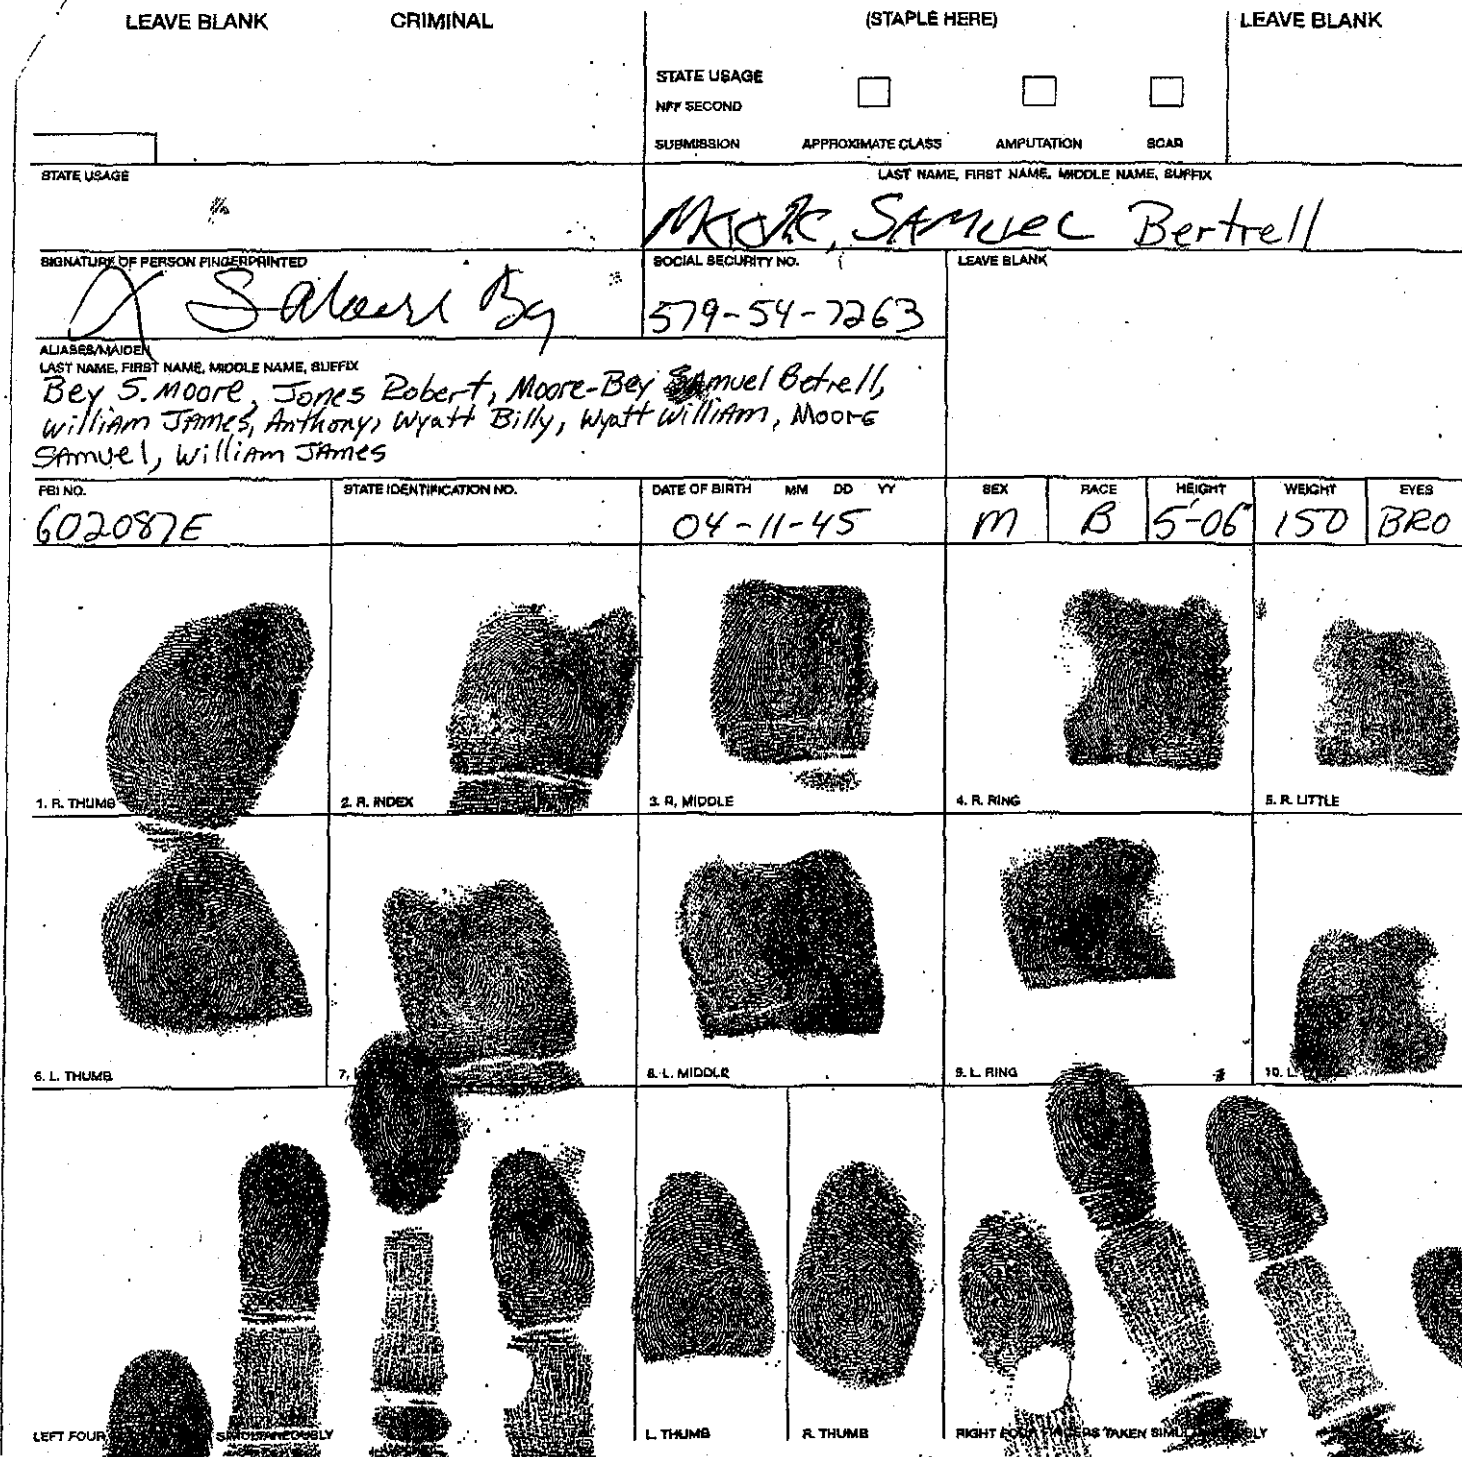 LEAVE BLANK CRIMINAL (STAPLE HERE) LEAVE BLANK
STATE USAGE
NFF SECOND
SUBMISSION APPROXIMATE CLASS AMPUTATION SCAR
STATE USAGE
LAST NAME, FIRST NAME, MIDDLE NAME, SUFFIX
SAMUEL Bertrell
SIGNATURE OF PERSON FINGERPRINTED
SOCIAL SECURITY NO.
579-54-7263
LEAVE BLANK
ALIASES/MAIDEN
LAST NAME, FIRST NAME, MIDDLE NAME, SUFFIX
Bey S. Moore, Jones Robert, Moore-Bey Samuel Betrell,
William James, Anthony, Wyatt Billy, Wyatt William, Moore
Samuel, William James
FBI NO. STATE IDENTIFICATION NO. DATE OF BIRTH MM DD YY SEX RACE HEIGHT WEIGHT EYES
602087E 04-11-45 M B 5-06 150 BRO
1. R. THUMB 2. R. INDEX 3. R. MIDDLE 4. R. RING 5. R. LITTLE
6. L. THUMB 7. 8. L. MIDDLE 9. L. RING 10. L.
LEFT FOUR SIMULTANEOUSLY L. THUMB R. THUMB RIGHT FOUR FINGERS TAKEN SIMULTANEOUSLY